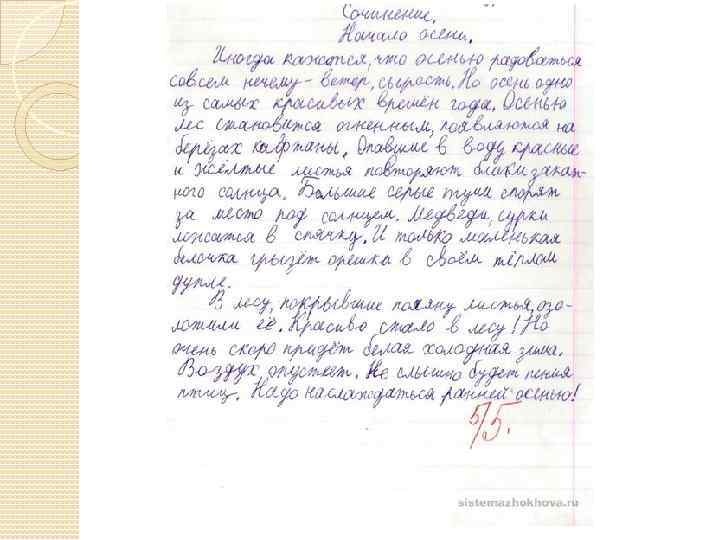 Сочинение.
Начало осени.
Иногда кажется, что осенью радоваться
совсем нечему - ветер, сырость. Но осень одно
из самых красивых времён года. Осенью
лес становится огненным, появляются на
берёзах кафтаны. Опавшие в воду красные
и жёлтые листья повторяют блики закат-
ного солнца. Большие серые тучи спорят
за место под солнцем. Медведи, сурки
ложатся в спячку. И только маленькая
белочка грызёт орешки в своём тёплом
дупле.
В лесу, покрывшие поляну листья, озо-
лотили её. Красиво стало в лесу! Но
очень скоро придёт белая холодная зима.
Воздух опустеет. Не слышно будет пения
птиц. Надо наслаждаться ранней осенью!
5/5.
sistemazhokhova.ru